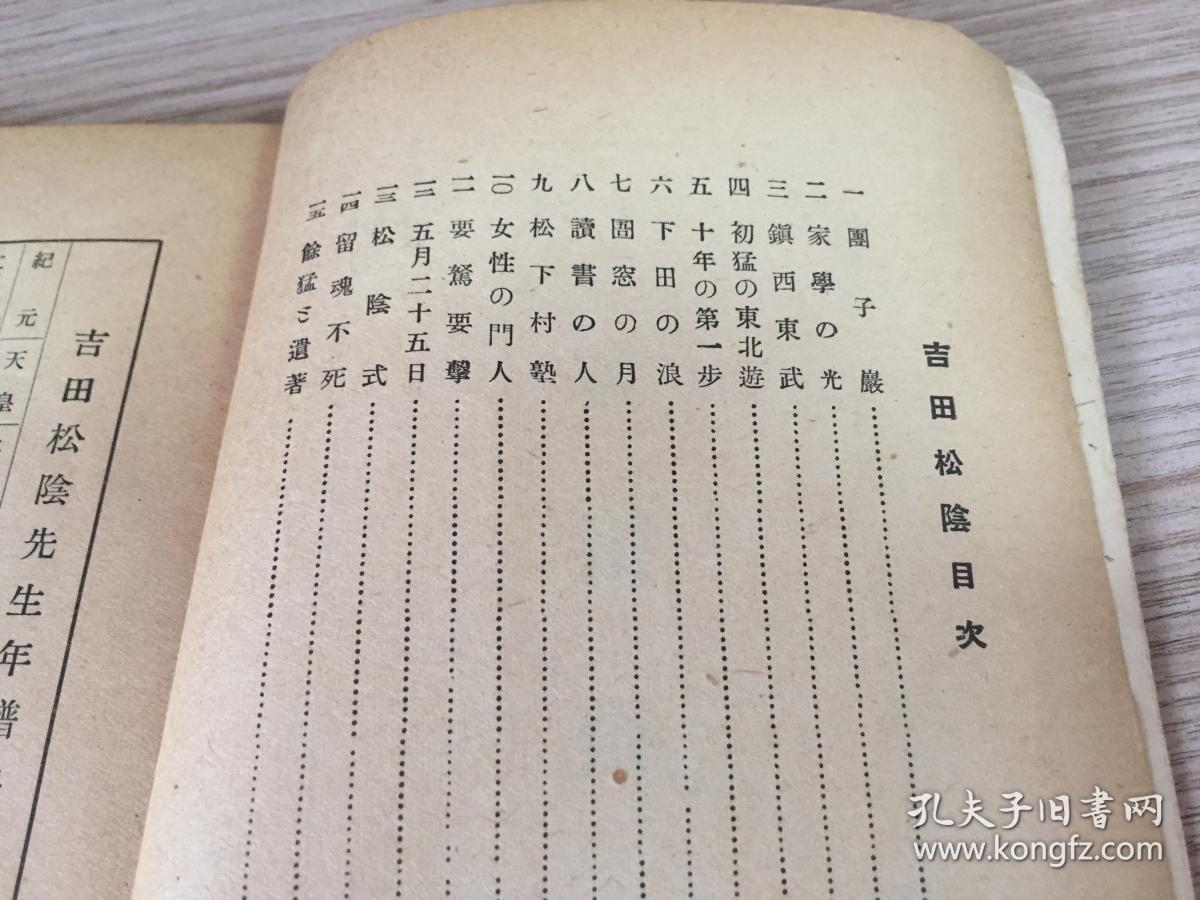 吉田松陰目次
一 團子巖
二 家學の光
三 鎭西東武
四 初猛の東北遊
五 十年の第一步
六 下田の浪
七 圄窓の月
八 讀書の人
九 松下村塾
一〇 女性の門人
一一 要駕要擊
一二 五月二十五日
一三 松陰式
一四 留魂不死
一五 餘猛と遺著
吉田松陰先生年譜
紀元
天皇
孔夫子旧书网
www.kongfz.com